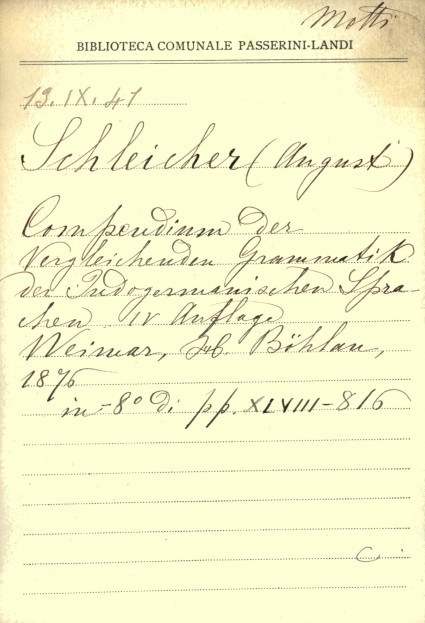 Motti
BIBLIOTECA COMUNALE PASSERINI-LANDI
19.IX.41
Schleicher (August)
Compendium der
Vergleichenden Grammatik
der Indogermanischen Spra-
chen. IV Auflage
Weimar, Böhlau,
1876
in-8° di pp. XLVIII-816
C.